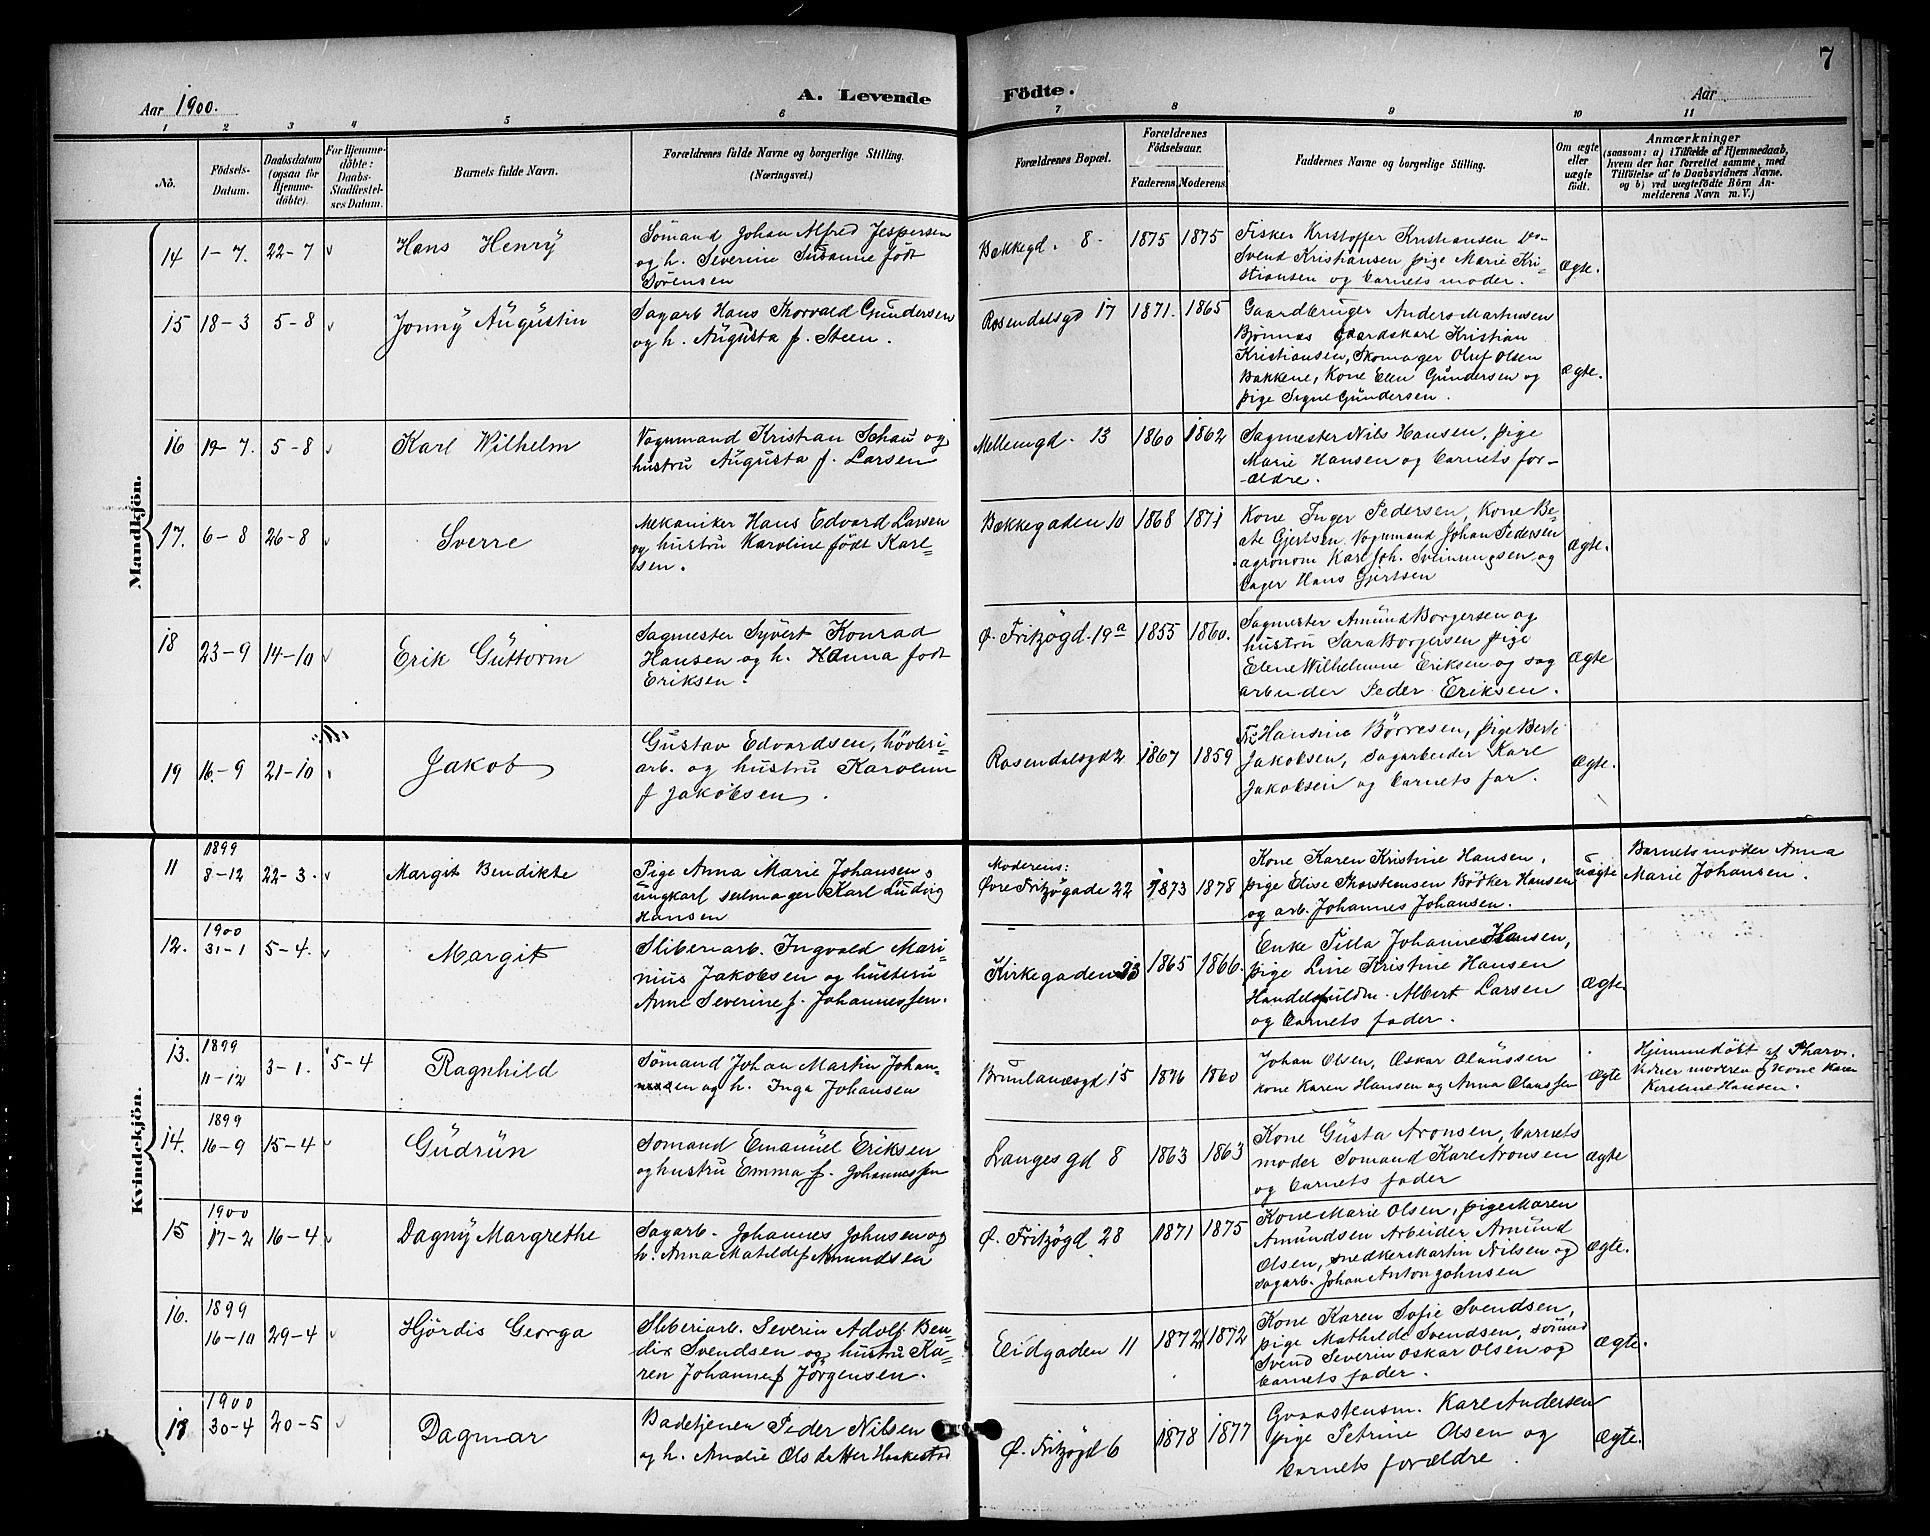 7
Aar 1900.
A. Levende Födte.
Aar
1 2 3 4 5 6 7 8 9 10 11
No.
Födsels-
Datum.
Daabsdatum
(ogsaa for
Hjemme-
döbte).
For Hjemme-
döbte:
Daabs-
Stadfæstel-
ses Datum.
Barnets fulde Navn.
Forældrenes fulde Navne og borgerlige Stilling.
(Næringsvei.)
Forældrenes Bopæl.
Forældrenes
Födselsaar.
Faderens. Moderens.
Faddernes Navne og borgerlige Stilling.
Om ægte
eller
uægte
födt.
Anmærkninger
(saasom: a) i Tilfælde af Hjemmedaab,
hvem der har forrettet samme, med
Tilföielse af to Daabsvidners Navne,
og b) ved uægtefödte Börn An-
melderens Navn m. V.)
Mandkjön.
14 1-7. 22-7 Hans Henry
Sömand Johan Alfred Jespersen
og h. Severine Susanne født
Sörensen
Bækkegd. 8. 1875 1875
Fisker Kristoffer Kristiansen Do-
Svend Kristiansen pige Marie Kri-
stiansen og barnets moder.
ægte.
15 18-3 5-8 Jonny Augustin
Sagarb Hans Thorvald Gundersen
og h. Augusta f. Steen.
Rosendalsgd 17 1871. 1865
Gaardbruger Anders Martinsen
Bjönnes gaardskarl Kristian
Kristiansen, Skomager Oluf Olsen
Bakkene, Kone Elen Gundersen og
pige Signe Gundersen.
ægte.
16 19-7. 5-8 Karl Wilhelm
Vognmand Kristian Schau og
hustru Augusta f. Larsen
Mellemgd. 13 1860 1862
Sagmester Nils Hansen, pige
Marie Hansen og barnets for-
ældre.
17. 6-8 26-8 Sverre
Mekaniker Hans Edvard Larsen
og hustru Karoline født Karl-
sen.
Bækkegaden 10 1868 1871
Kone Inger Pedersen, Kone Be-
ate Gjertsen. Vognmand Johan Pedersen
agronom Karl Joh. Sveinungsen og
bager Hans Gjertsen
ægte.
18 23-9 14-10 Erik Guttorm
Sagmester Syvert Konrad
Hansen og h. Hanna født
Eriksen.
Ø. Fritzögd. 19a 1855 1860.
Sagmester Amund Borgersen og
hustru Sara Borgersen pige
Elene Wilhelmine Eriksen og sag
arbeider Peder Eriksen.
ægte
19 16-9 21-10 Jakob
Gustav Edvardsen, hövleri-
arb. og hustru Karoline
f Jakobsen.
Rosendalsgd 2 1867 1859
Fr. Hansine Börresen, pige Berti
Jakobsen, sagarbeider Karl
Jakobsen og barnets far.
ægte.
Kvindekjön.
11 1899
8-12 22-3. Margit Bendikte
Pige Anna Marie Johansen,
ungkarl seilmager Karl Ludvig
Hansen
Moderens:
Øvre Fritzögade 22 1873 1878
Kone Karen Kristine Hansen,
pige Elise Thorstensen Bödker Hansen
og arb. Johannes Johansen.
uægte
Barnets moder Anna
Marie Johansen.
12. 1900
31-1 5-4. Margit
Sliberiarb. Ingvald Mari-
nius Jakobsen og hustru
Anne Severine f. Johannessen.
Kirkegaden 23 1865 1866.
Enke Tilla Johanne Hansen,
pige Line Kristine Hansen
Handelsfuldm. Albert Larsen
og barnets fader.
ægte.
13. 1899
11-12 3-1. 5-4 Ragnhild
Sömand Johan Martin Johan-
sen og h. Inga Johansen
Brunlanesgd 15 1876 1860
Johan Olsen, Oskar Olaussen
kone Karen Hansen og Anna Olaussen
ægte
Hjemmedöbt af
Vidner moderen og Kone Karen
Kirstine Hansen.
14. 1899
16-9 15-4 Gudrun
Sömand Emanuel Eriksen
og hustru Emma f. Johannessen
Langesgd 8 1863 1863
Kone Gusta Aronsen, barnets
moder Sömand Karl Aronsen
og barnets fader
ægte
15 1900
17-2 16-4 Dagny Margrethe
Sagarb. Johannes Johnsen og
h. Anna Matilde f Amundsen
Ø. Fritzögd 28 1871 1875
Kone Marie Olsen, pige Maren
Amundsen Arbeider Amund
Olsen, snedker Martin Nilsen og
sagarb. Johan Anton Johnsen
ægte.
16. 1899
16-10 29-4 Hjördis Georga
Sliberiarb. Severin Adolf Ben-
dix Svendsen og hustru Ka-
ren Johanne f Jörgensen.
Eidgaden 11 1872 1872
Kone Karen Sofie Svendsen,
pige Mathilde Svendsen, sömand
Svend Severin Oskar Olsen og
barnets fader.
ægte.
17 1900
30-4 20-5 Dagmar
Badetjener Peder Nilsen
og h. Amalie Olsdatter Haakestad
Ø. Fritzögd 6 1878 1877
Karl Andersen
pige Petrine Olsen og
barnets forældre.
ægte.